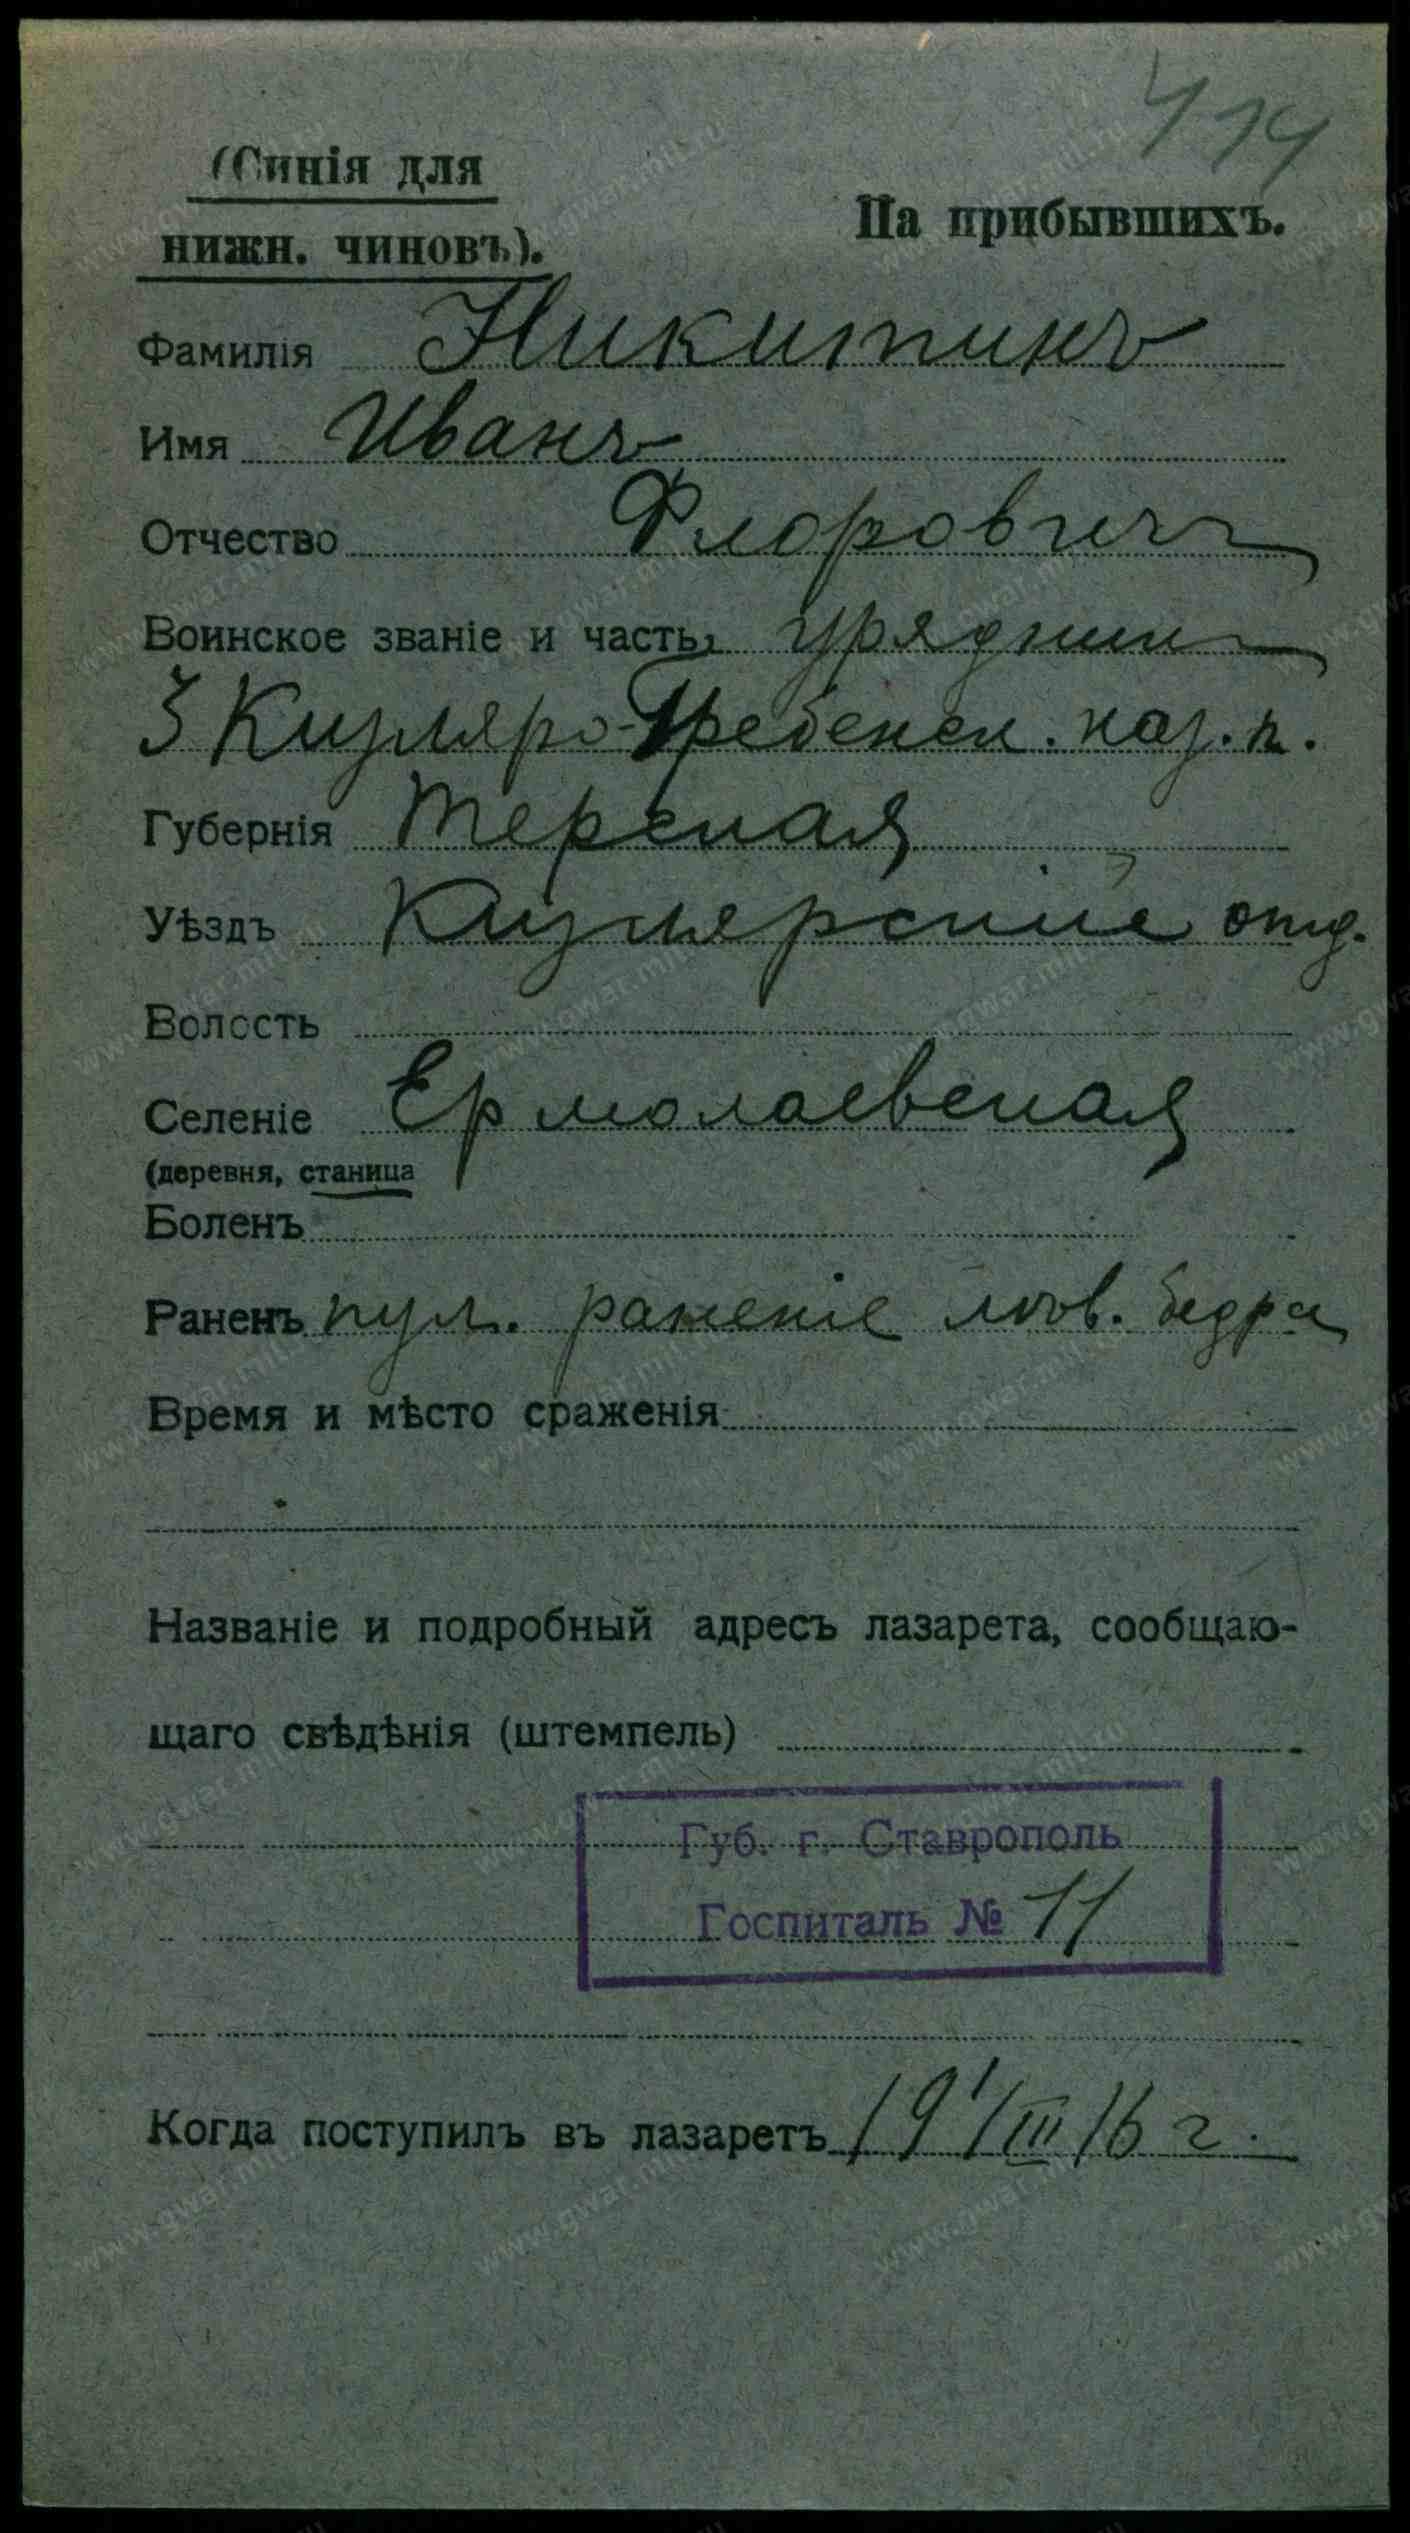 414
(Синія для
нижн. чиновъ).
На прибывшихъ.
Фамилія Никитинъ
Имя Иванъ
Отчество Флоровичъ
Воинское званіе и часть, урядник
3 Кизляро-Гребенск. каз. п.
Губернія Терская
Уѣздъ Кизлярскій отд.
Волость
Селеніе Ермолаевская
(деревня, станица
Боленъ
Раненъ пул. раненіе лѣв. бедра
Время и мѣсто сраженія
Названіе и подробный адресъ лазарета, сообщаю-
щаго свѣдѣнія (штемпель)
Губ. г. Ставрополь
Госпиталь № 11
Когда поступилъ въ лазаретъ 19/III 16 г.
www.gwar.mil.ru